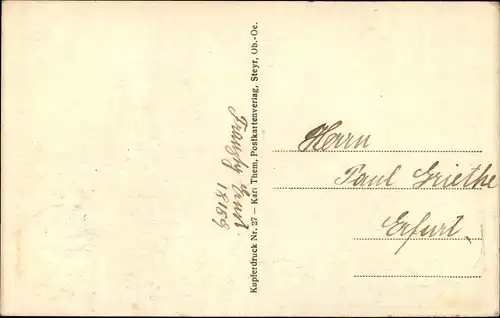 Kupferdruck Nr. 27 — Karl Them, Postkartenverlag, Steyr, Ob.-Oe.
Herrn
Paul Griethe
Erfurt.